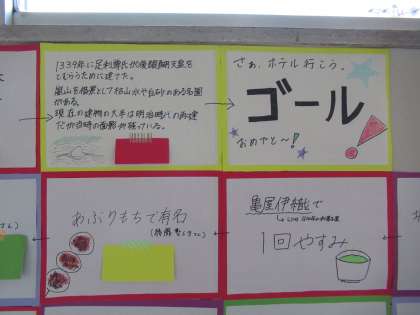 1339年に足利尊氏が後醍醐天皇を
とむらうために建てた。
嵐山を借景とした枯山水や白砂のある名園
がある。
現在の建物の大半は明治時代の再建
だが当時の面影が残っている。
さぁ、ホテル行こう。
ゴール
おめでと〜!
あぶりもちで有名
亀屋伊織で
1回やすみ